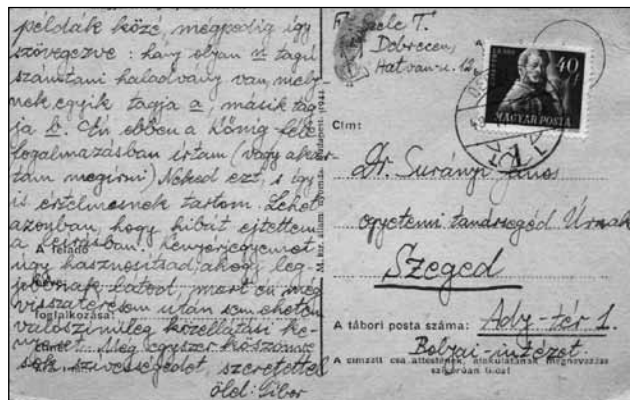 példák közé, mégpedig így
szövegezve: hány olyan n tagú
számtani haladvány van, mely-
nek egyik tagja a, másik tag-
ja b. Én ebben a Kőnig-féle
fogalmazásban írtam (vagy akar-
tam megírni) Neked ezt, s így
is értelmesnek tartom. Lehet
azonban, hogy hibát ejtettem
a leírásban. Kenyérjegyemet
A feladó
úgy hasznosítsad, ahogy leg-
jobbnak látod, mert én még
visszatérésem után sem ehetem
foglalkozása:
valószínűleg közellátási ke-
nyeret. Még egyszer köszönve
szívességedet, szeretettel
ölel: Tibor
T.
Debrecen,
Hatvan u.
40
MAGYAR POSTA
Cím:
Dr. Surányi János
egyetemi tanársegéd Úrnak
Szeged
A tábori posta száma: Ady-tér 1.
Bolyai-intézet.
A címzett